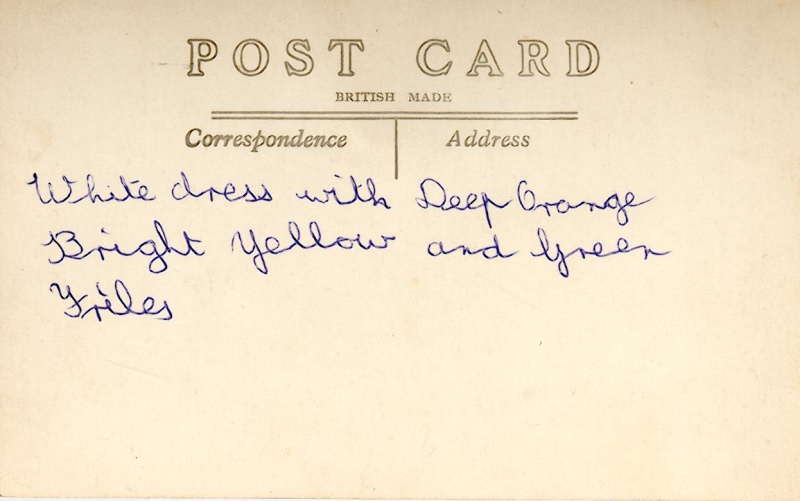 POST CARD
BRITISH MADE
Correspondence Address
White dress with Deep Orange
Bright Yellow and Green
Friles